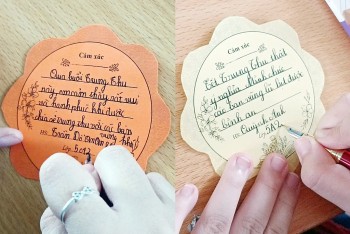 Cảm xúc
Qua buổi Trung Thu
này, em cảm thấy rất vui
và hạnh phúc khi được
chia sẻ trung thu với các bạn
Trần Đỗ
Lớp 5A2
Cảm xúc
Tết Trung Thu thật
ý nghĩa. Mình chúc
các bạn vùng lũ luôn được
bình an
Quỳnh Anh
5A2